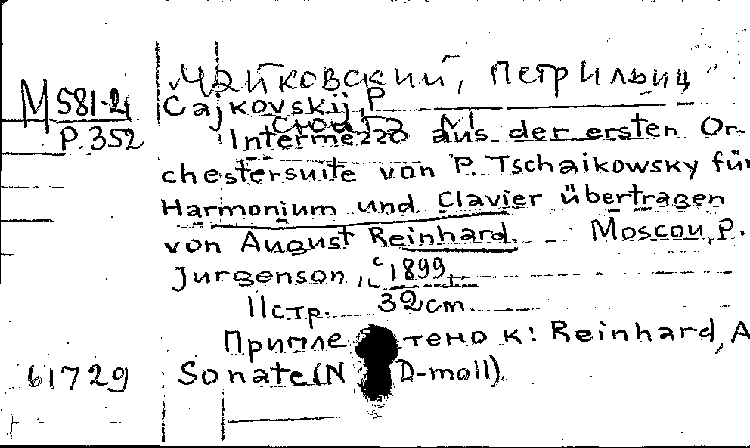 Чайковский, Петр Ильич
M 581-21
P. 352
Cajkovskij, P
Intermezzo aus der ersten Or-
chestersuite von P. Tschaikowsky für
Harmonium und Clavier übertragen
von August Reinhard. Moscou, P.
Jurgenson, c 1899.
11 стр. 32 cm
Припле тено к: Reinhard, A
61729 Sonate (N D-moll)